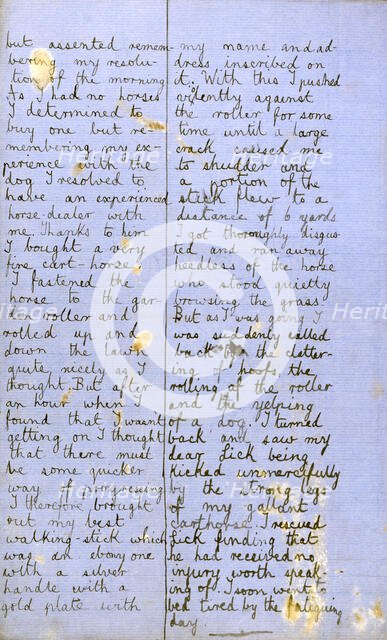 but assented remem-
bering my resolu-
tion of the morning
As I had no horses
I determined to
buy one but re-
membering my ex-
perience with the
dog I resolved to
have an experienced
horse-dealer with
me. Thanks to him
I bought a very
fine cart-horse.
I fastened the
horse to the gar-
den roller and
rolled up and
down the lawn
quite nicely as I
thought. But after
an hour when I
found that I wasnt
getting on I thought
that there must
be some quicker
way of progressing
I therefore brought
out my best
walking-stick which
was an ebony one
with a silver
handle with a
gold plate with
my name and ad-
dress inscribed on
it. With this I pushed
violently against
the roller for some
time until a large
crack caused me
to shudder and
a portion of the
stick flew to a
distance of 6 yards
I got thoroughly disgus-
ted and ran away
heedless of the horse
who stood quietly
browsing the grass.
But as I was going I
was suddenly called
back by the clatter-
ing of hoofs, the
rolling of the roller
and the yelping
of a dog. I turned
back and saw my
dear Lick being
kicked unmercifully
by the strong legs
of my gallant
carthorse. I rescued
Lick finding that
he had received no
injury worth speak-
ing of. I soon went to
bed tired by the fatiguing
day.
Heritage